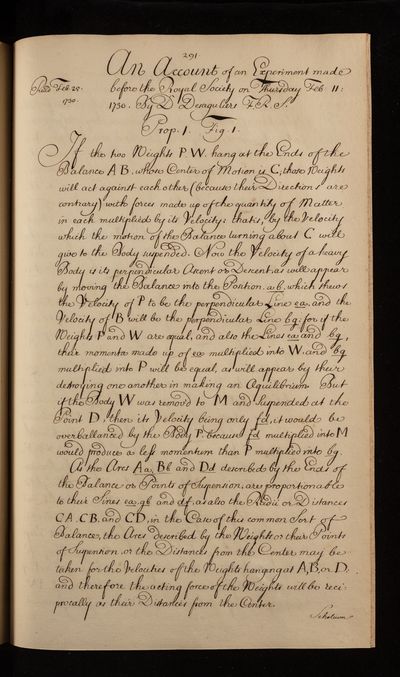 291
An Account of an Experiment made
Read Feb. 25. before the Royal Society on Thursday Feb 11:
1730. 1730. By D. Desaguliers F. R. S.
Prop. 1. Fig. 1.
If the two Weights P. W. hang at the Ends of the
Balance A B. whose Center of Motion is C; those Weights
will act against each other (because their Directions are
contrary) with forces made up of the quantity of Matter
in each multiplied by its Velocity: that is, by the Velocity
which the motion of the Balance turning about C will
give to the Body suspended. Now the Velocity of a heavy
Body is its perpendicular Ascent or Descent, as will appear
by moving the Balance into the Position. a b. which shews
the Velocity of P to be the perpendicular Line ea, and the
Velocity of B will be the perpendicular Line bg: for if the
Weights P and W are equal, and also the Lines ea and bg,
their momenta made up of ea multiplied into W. and bg
multiplied into P will be equal, as will appear by their
destroying one another in making an Æquilibrium. But
if the Body W was remov'd to M and suspended at the
Point D, then its Velocity being only fd, it would be
overballanced by the Body P. because fd multiplied into M
would produce a less momentum than P multiplied into bg.
As the Arcs Aa, Bb and Dd described by the Ends of
the Balance or Points of Suspension, are proportionable
to their Sines ea. gb and df; as also the Radii or Distances
CA. CB. and CD, in the Case of this common Sort of
Balance, the Arcs described by the Weights or their Points
of Suspension, or the Distances from the Center may be
taken for the Velocities of the Weights hanging at A, B, or D.
and therefore the acting force of the Weights will be reci-
procally as their Distances from the Center.
Scholium